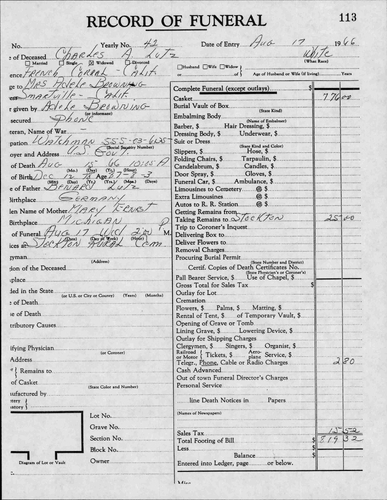 RECORD OF FUNERAL 113
No. Yearly No. 42 Date of Entry Aug 17 1966
of Deceased Charles A Lutz White
Married Single Widowed Divorced Husband Wife Widow (What Race)
ence French Corral - Calif. or of Age of Husband or Wife (if living)
ge to Mrs Adele Browning
Smartville - Calif
r given by Adele Browning
(or informant)
secured Phone
eran, Name of War
pation Watchman
(Social Security Number)
oyer and Address U.S. Govt
of Death Aug 15 66 10:05 A
of Birth Dec 12 78
e of Father Benard Lutz
Birthplace Germany
den Name of Mother Mary Ernst
Birthplace Michigan
of Funeral Aug 17 Wed 2:00 P M.
ices at Stockton Rural Cem.
gyman (Address)
ion of the Deceased
place
ded in the State
(or U.S. or City or County) (Years) (Months)
e of Death
tributary Causes
ifying Physician
(or Coroner)
Address
Remains to
of Casket
(State Color and Number)
ufactured by
tery
atory
Lot No.
Grave No.
Section No.
Block No.
Owner
Diagram of Lot or Vault
Complete Funeral (except outlays) $
Casket 770 00
Burial Vault of Box
(State Kind)
Embalming Body
(Name of Embalmer)
Barber, $ Hair Dressing, $
Dressing Body, $ Underwear, $
Suit or Dress
(State Kind and Color)
Slippers, $ Hose, $
Folding Chairs, $ Tarpaulin, $
Candelabrum, $ Candles, $
Door Spray, $ Gloves, $
Funeral Car, $ Ambulance, $
Limousines to Cemetery @ $
Extra Limousines @ $
Autos to R. R. Station @ $
Getting Remains from
Taking Remains to Stockton 25 00
Trip to Coroner's Inquest
Delivering Box to
Deliver Flowers to
Removal Charges
Procuring Burial Permit
(State Number and District)
Certif. Copies of Death Certificates No.
(State Physician's or Coroner's)
Pall Bearer Service, $ Use of Chapel, $
Gross Total for Sales Tax $
Outlay for Lot
Cremation
Flowers, $ Palms, $ Matting, $
Rental of Tent, $ of Temporary Vault, $
Opening of Grave or Tomb
Lining Grave, $ Lowering Device, $
Outlay for Shipping Charges
Clergymen, $ Singers, $ Organist, $
Railroad or Motor Tickets, $ Aeroplane Service, $
Telegr., Phone, Cable or Radio Charges 2 80
Cash Advanced
Out of town Funeral Director's Charges
Personal Service
line Death Notices in Papers
(Names of Newspapers)
Sales Tax
Total Footing of Bill $ 819 32
Less $
Balance $
Entered into Ledger, page or below.